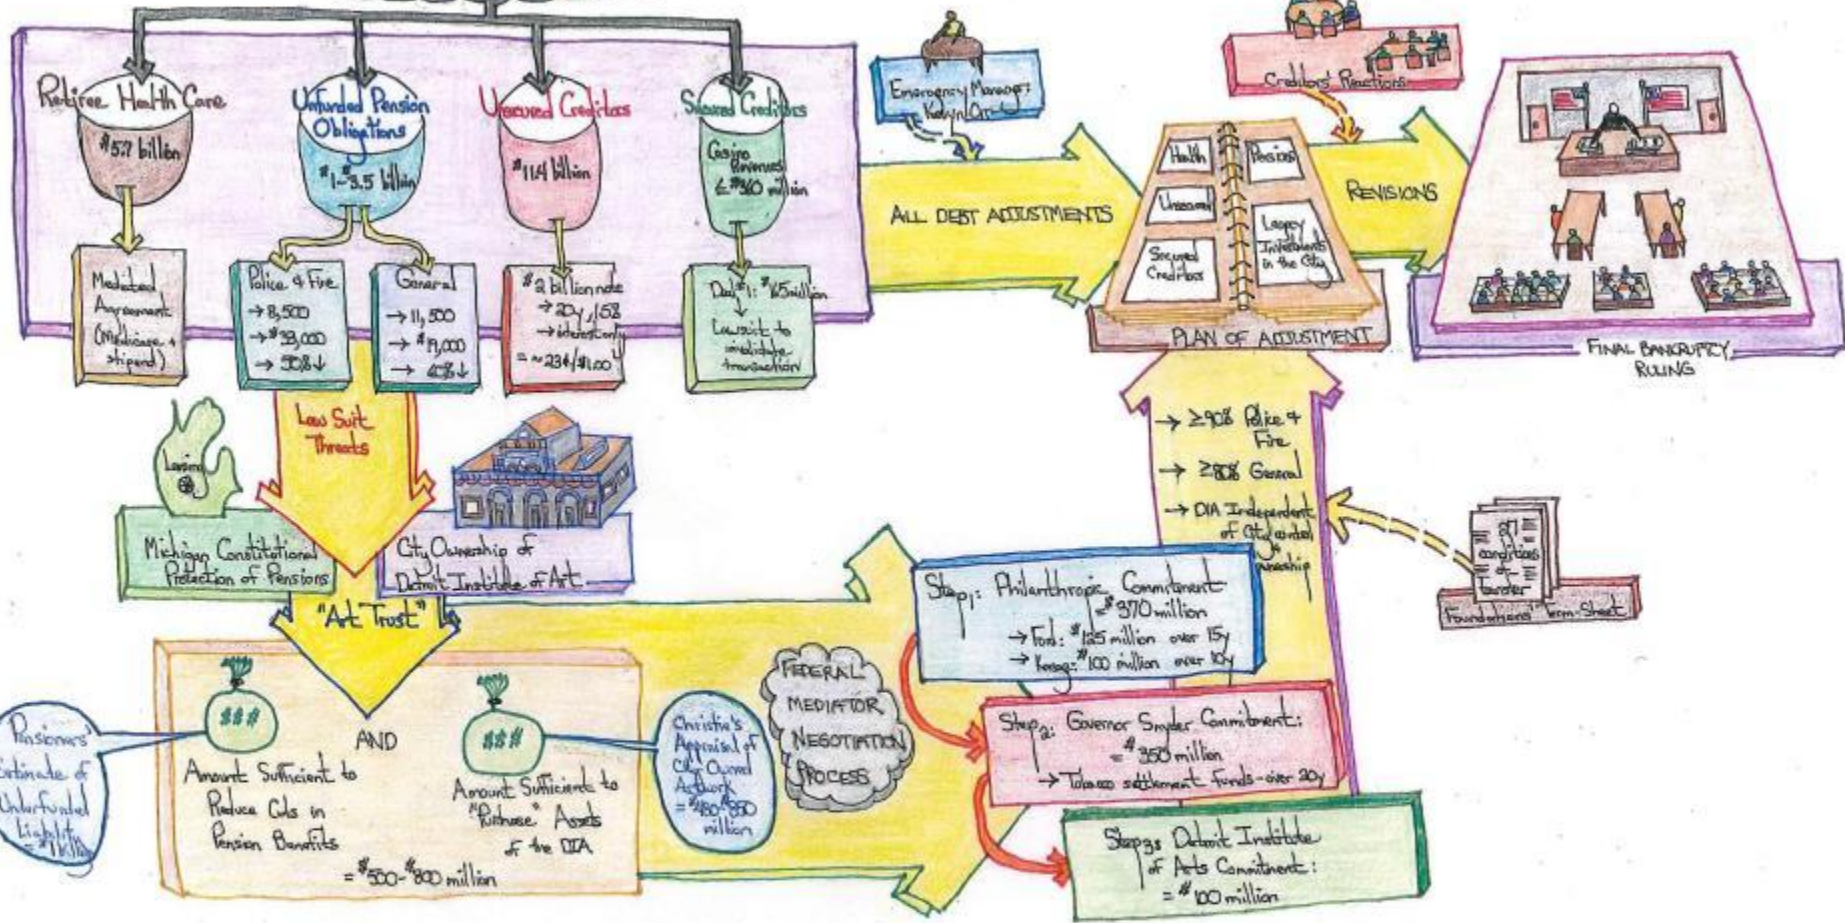 Retiree Health Care
$5.7 billion
Mediated
Agreement
(Medicare +
stipend)
Unfunded Pension
Obligations
$1-$3.5 billion
Police & Fire
→ 8,500
→ $33,000
→ 90%↓
General
→ 11,500
→ $19,000
→ 40%↓
Unsecured Creditors
$11.4 billion
$2 billion note
→ 20y, 1.5%
→ interest only
= ~23¢/$1.00
Secured Creditors
Casino
Revenues
≤ $360 million
Deal #1: $165 million
Lawsuit to
invalidate
transaction
Emergency Manager:
Kevyn Orr
ALL DEBT ADJUSTMENTS
Health
Pensions
Unsecured
Secured
Creditors
Legacy
Investments
in the City
PLAN OF ADJUSTMENT
Creditors' Reactions
REVISIONS
FINAL BANKRUPTCY
RULING
Law Suit
Threats
Lansing
Michigan Constitutional
Protection of Pensions
City Ownership of
Detroit Institute of Art
"Art Trust"
$$$
AND
$$$
Amount Sufficient to
Reduce Cuts in
Pension Benefits
Amount Sufficient to
"Purchase" Assets
of the DIA
= $500-$800 million
Pensioners'
Estimate of
Underfunded
Liability
= $1 billion
Christie's
Appraisal of
City Owned
Artwork
million
FEDERAL
MEDIATOR
NEGOTIATION
PROCESS
Step 1: Philanthropic Commitment
= $370 million
→ Ford: $125 million over 15y
→ Kresge: $100 million over 10y
Step 2: Governor Snyder Commitment:
= $350 million
→ Tobacco settlement funds - over 20y
Step 3: Detroit Institute
of Arts Commitment:
= $100 million
→ ≥90% Police &
Fire
→ ≥80% General
→ DIA Independent
of City control
conditions
of
transfer
Foundations' Term-Sheet